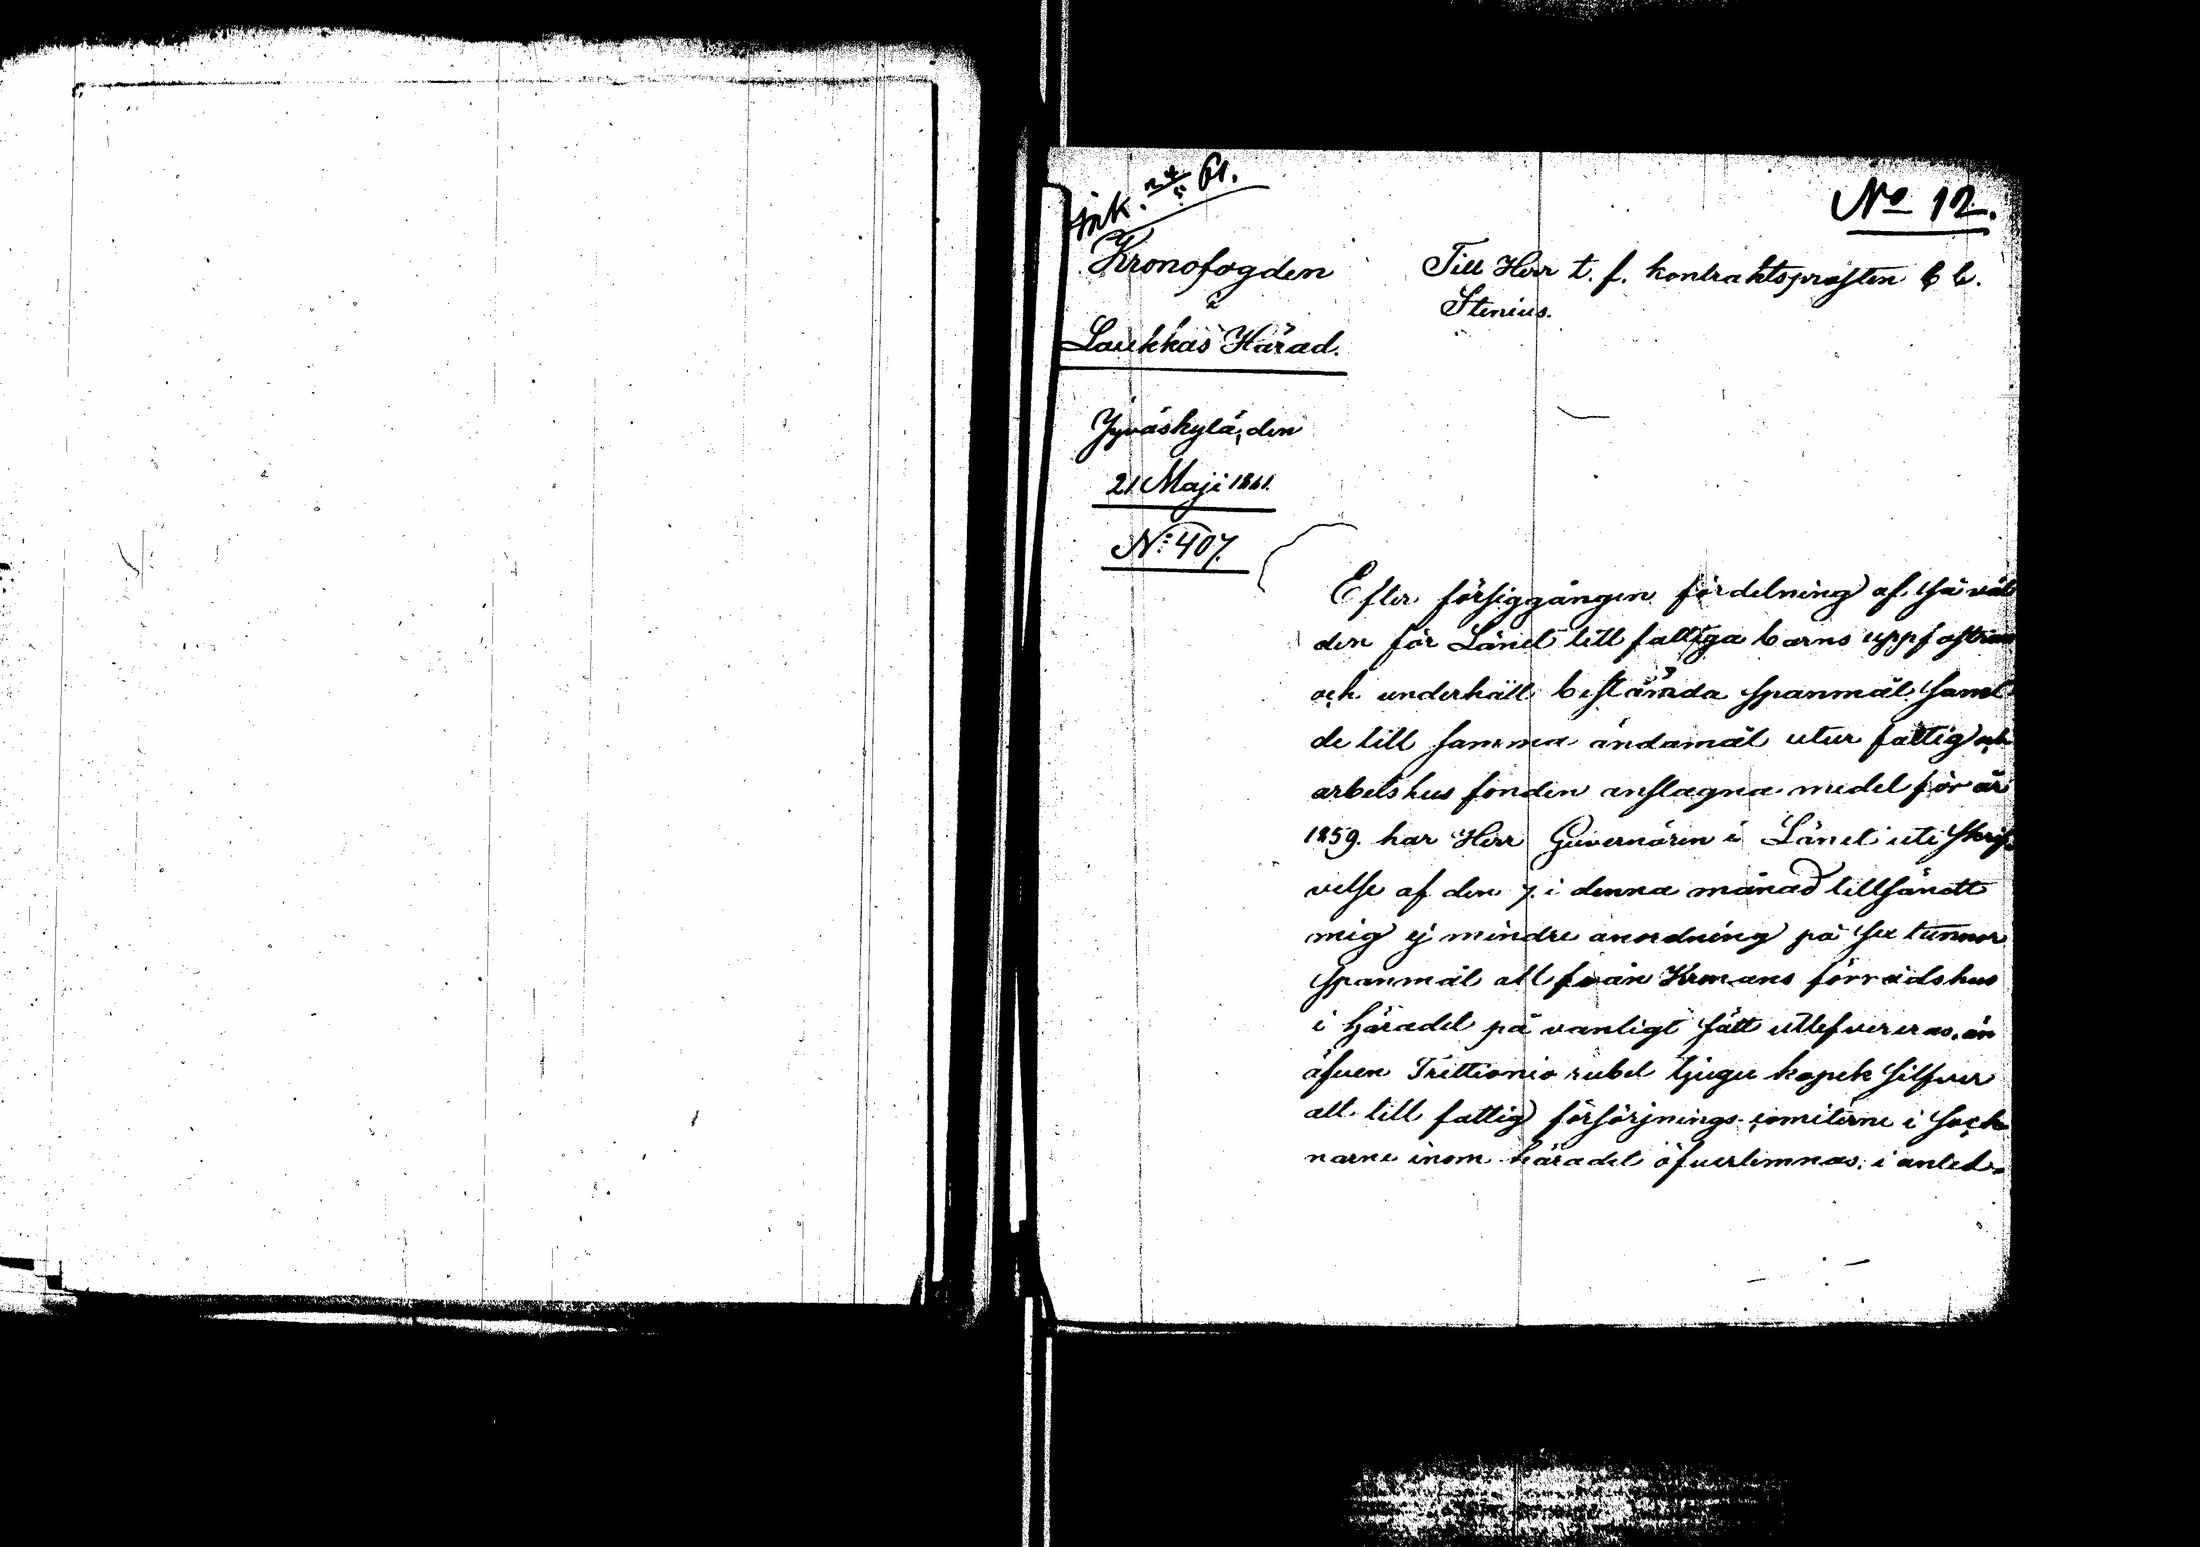 ink. 24/5 61.
No 12.
Kronofogden
i
Laukkas Härad.
Jyväskylä, den
21 Maji 1861.
No 407.
Till Herr t. f. kontraktsprosten
Stenius.
Efter försiggången fördelning af så väl
den för Länet till fattiga barns uppfostran
och underhåll bestånda spanmål samt
de till samma ändamål utur fattig och
arbetshus fonden anslagna medel för år
1859. har Herr Guvernören i Länet uti skrif-
velse af den 7. i denna månad tillsändt
mig ej mindre anordning på sex tunnor
spanmål att från Kronans förrådshus
i häradet på vanligt sätt utlefvereras, än
äfven Trettionio rubel tjugu kopek silfver
att till fattig försörjnings comitérne i sock-
narne inom häradet öfverlemnas; i anled-